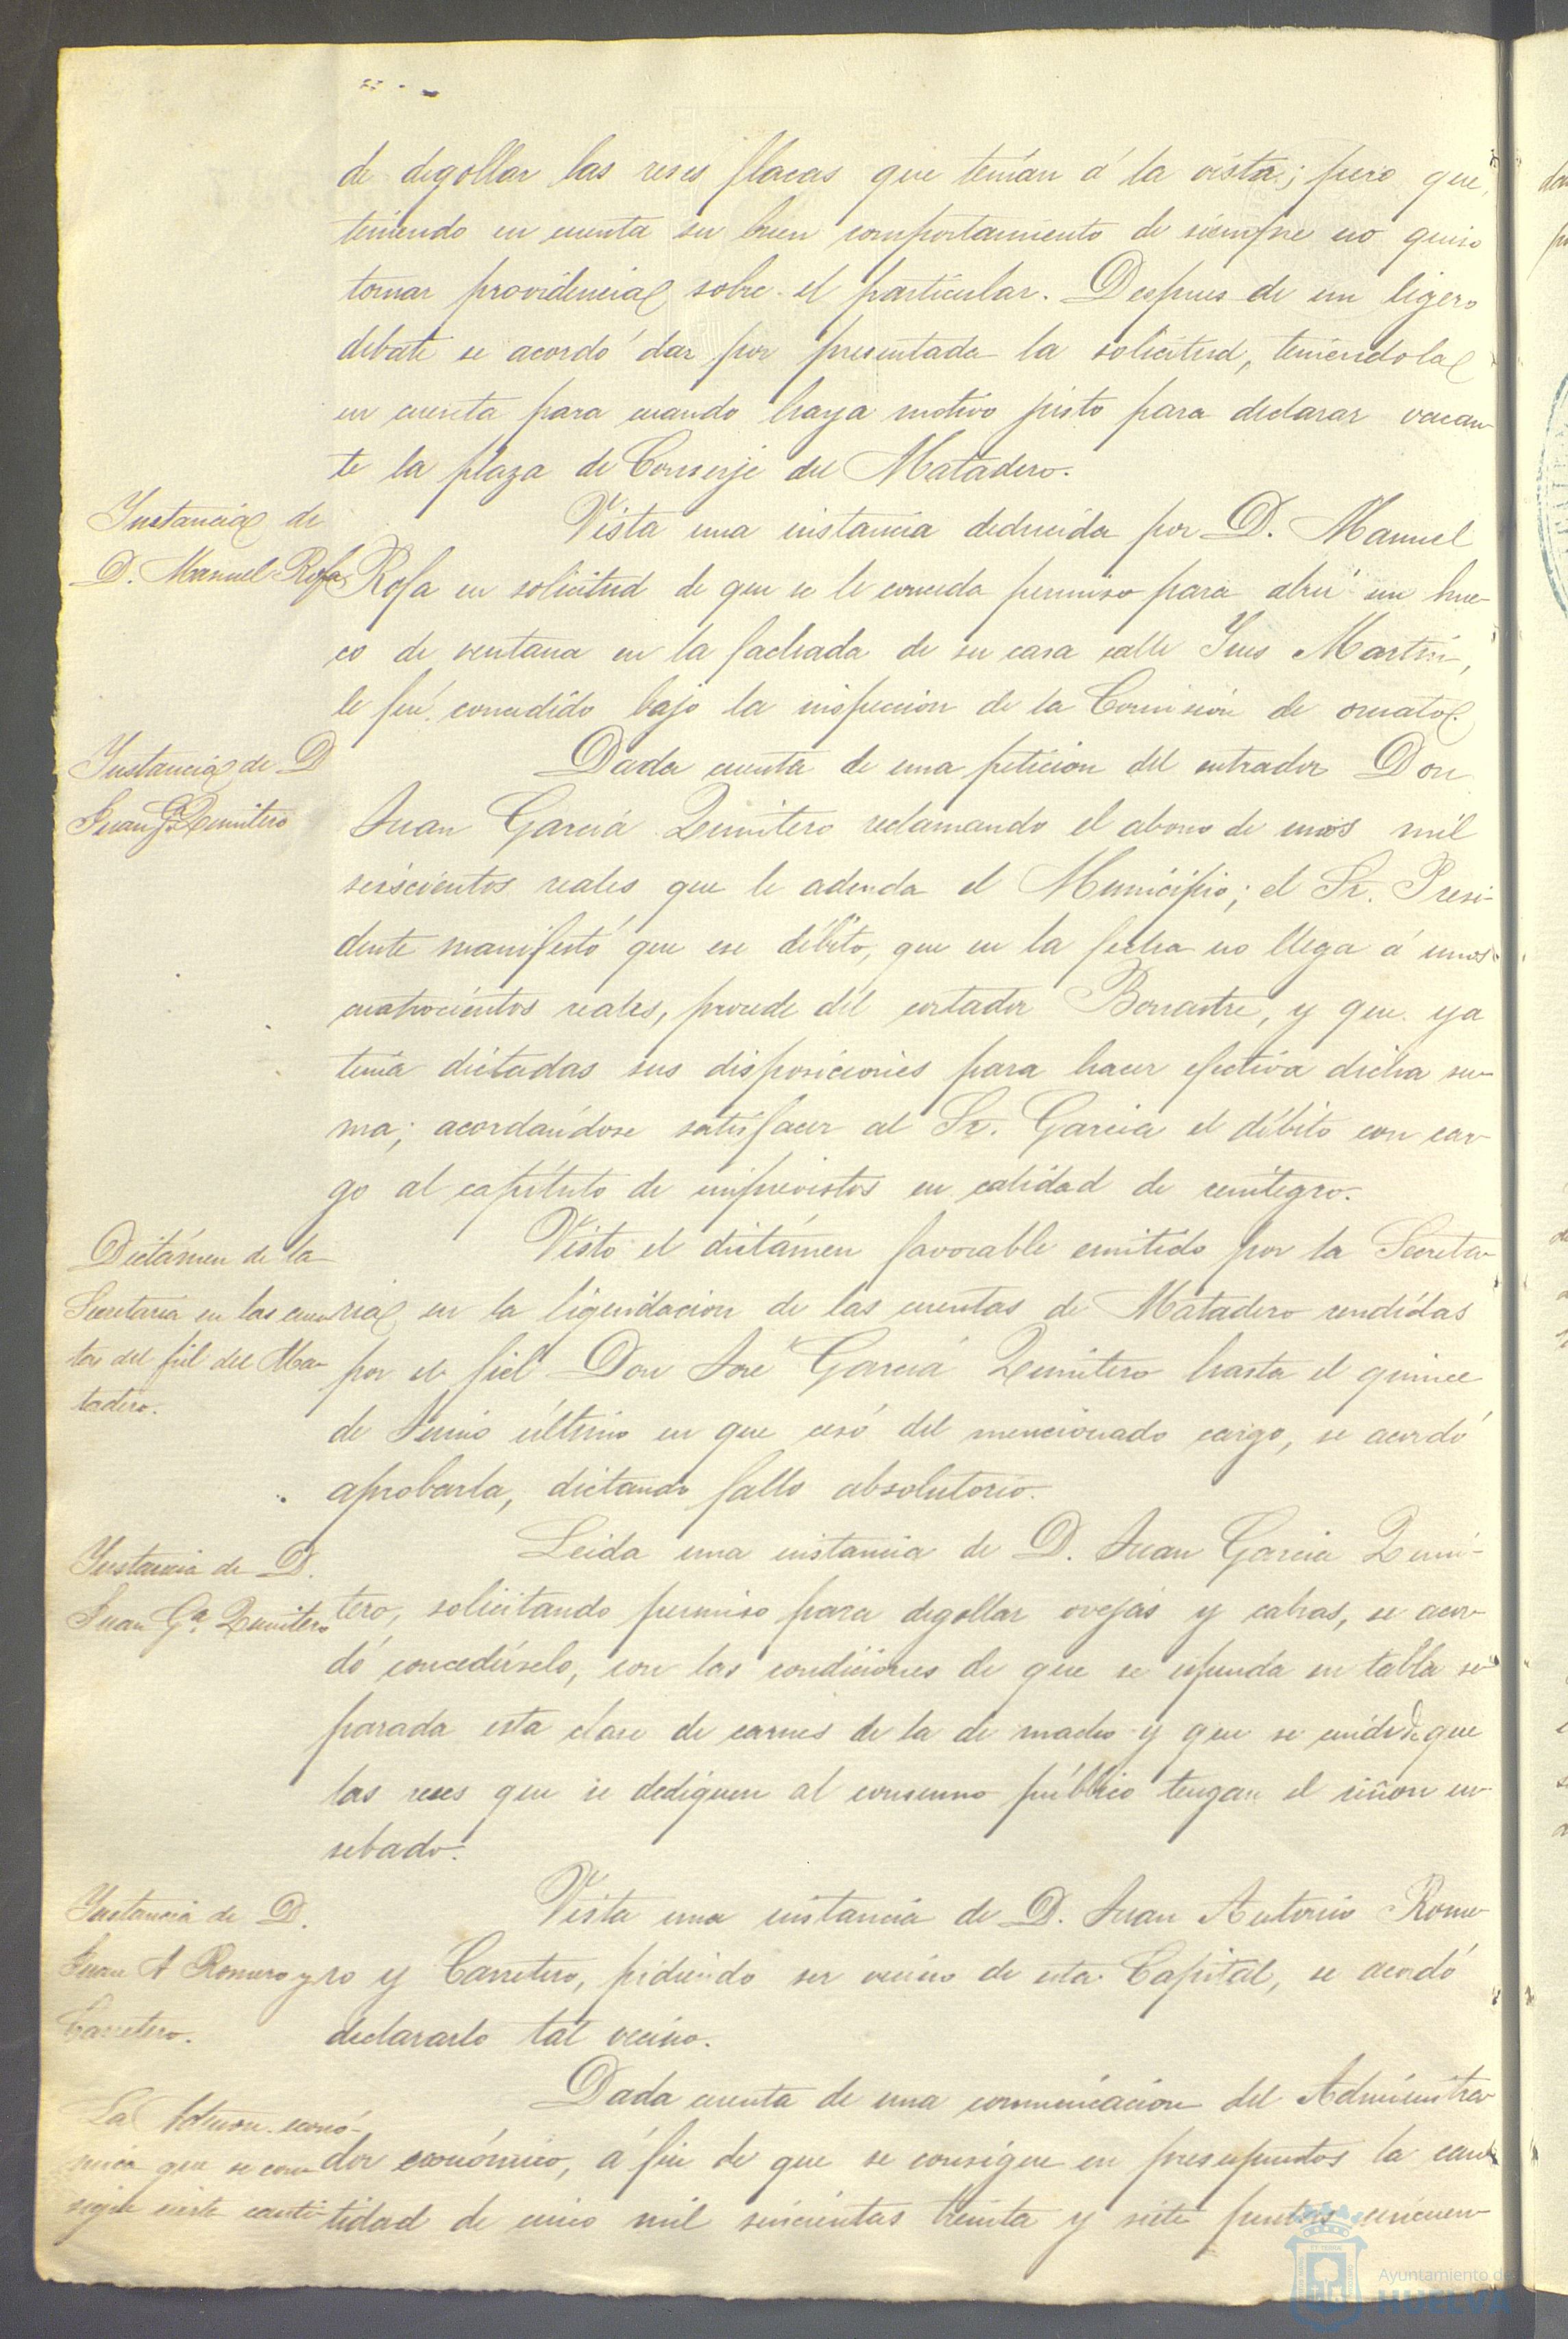 de degollar las reses flacas que tenían á la vista; pero que,
teniendo en cuenta su buen comportamiento de siempre no quiso
tomar providencia sobre el particular. Despues de un ligero
debate se acordó dar por presentada la solicitud, teniéndola
en cuenta para cuando haya motivo justo para declarar vacan-
te la plaza de Conserje del Matadero.
Instancia de
D. Manuel Rofa
Vista una instancia deducida por D. Manuel
Rofa en solicitud de que se le conceda permiso para abrir un hue-
co de ventana en la fachada de su casa calle Ines Martin,
le fué concedido bajo la inspeccion de la Comision de ornato.
Instancia de D
Juan Gª Quintero
Dada cuenta de una peticion del entrador Don
Juan García Quintero reclamando el abono de unos mil
seiscientos reales que le adeuda el Municipio; el Sr. Presi-
dente manifestó que ese débito, que en la fecha no llega á unos
cuatrocientos reales, procede del cortador Borrastre, y que ya
tenia dictadas sus disposiciones para hacer efectiva dicha su-
ma; acordándose satisfacer al Sr. Garcia el débito con car-
go al capítulo de imprevistos en calidad de reintegro.
Dictámen de la
Secretaria en las cuen-
tas del fiel del Ma-
tadero.
Visto el dictámen favorable emitido por la Secreta-
ria en la liquidacion de las cuentas de Matadero rendidas
por el fiel Don José García Quintero hasta el quince
de Junio último en que cesó del mencionado cargo, se acordó
aprobarla, dictando fallo absolutorio.
Instancia de D.
Juan Gª. Quintero
Leida una instancia de D. Juan Garcia Quin-
tero, solicitando permiso para degollar ovejas y cabras, se acor-
dó concedérselo, con las condiciones de que se espenda en tabla se-
parada esta clase de carnes de la de macho y que se cuide de que
las reses que se dediquen al consumo público tengan el riñon en-
sebado.
Instancia de D.
Juan A Romero y
Carretero.
Vista una instancia de D. Juan Antonio Rome-
ro y Carretero, pidiendo ser vecino de esta Capital, se acordó
declararlo tal vecino.
La Admon. econó-
mica que se con-
signe cierta canti-
Dada cuenta de una comunicacion del Administra-
dor económico, á fin de que se consigne en presupuestos la can-
tidad de cinco mil seiscientas treinta y siete pesetas cincuen-
Ayuntamiento de
HUELVA